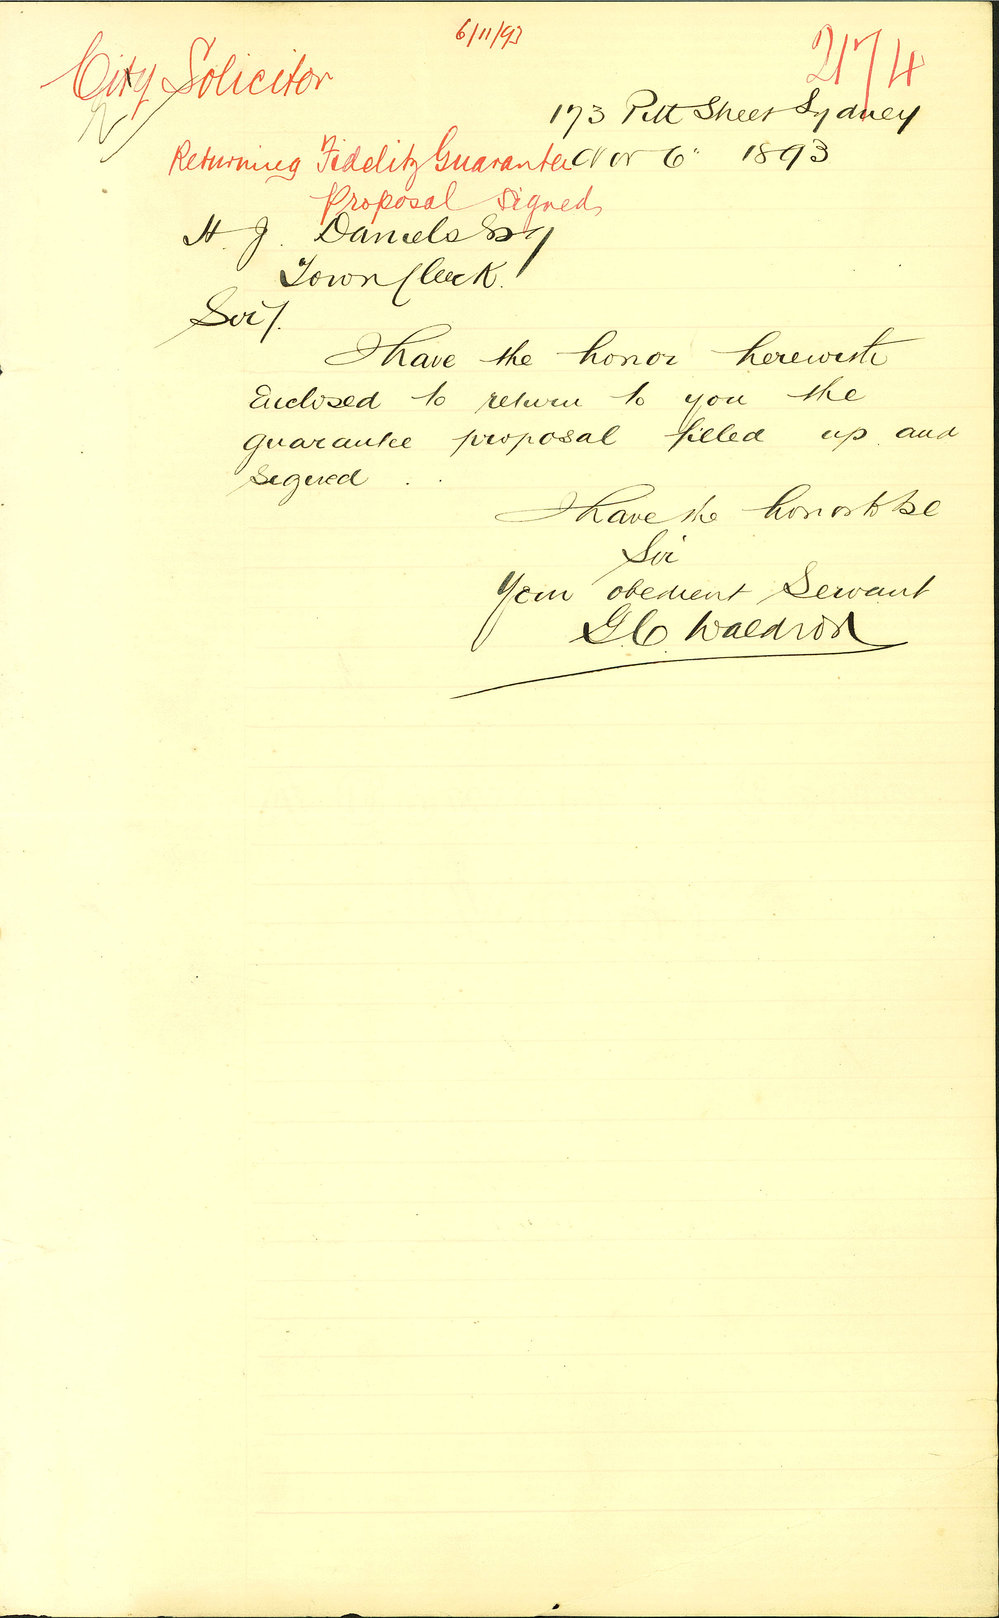 6/11/93
City Solicitor
2174
173 Pitt Street Sydney
Returning Fidelity Guarantee
Nov 6" 1893
Proposal signed
H. J. Daniels Esq
Town Clerk.
Sir/.
I have the honor herewith
Enclosed to return to you the
guarantee proposal filled up and
signed
I have the honor to be
Sir
Your obedient Servant
G. C. Waldron